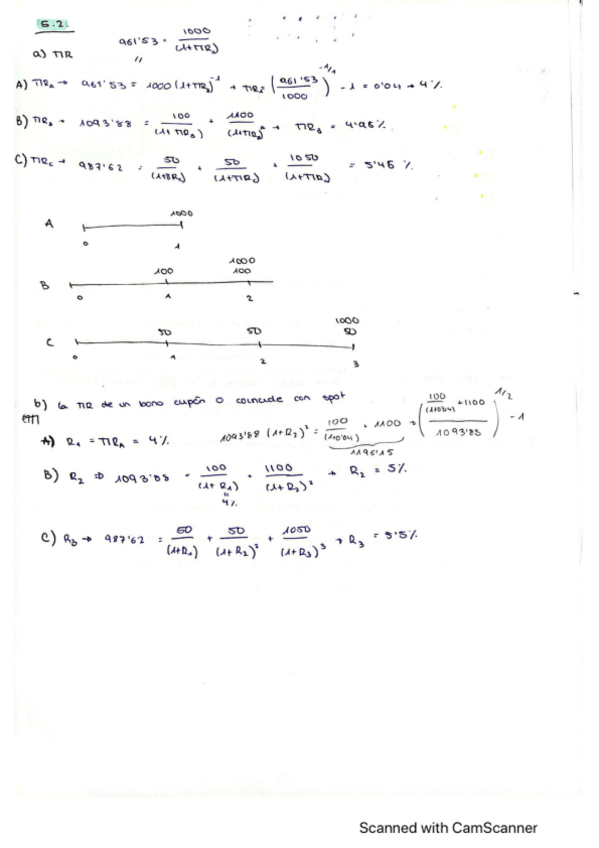 5.2.
a) TIR 961'53 = 1000/(1+TIR)
A) TIR_A → 961'53 = 1000 (1+TIR)^-1 → TIR = (961'53/1000)^-1/1 - 1 = 0'04 → 4%
B) TIR_B → 1093'88 = 100/(1+TIR_B) + 1100/(1+TIR_B)² → TIR_B = 4'95%.
C) TIR_C → 987'62 = 50/(1+TIR) + 50/(1+TIR) + 1050/(1+TIR) = 5'45 %.
1000
A
0 1
1000
100 100
B
0 1 2
1000
50 50 50
C
0 1 2 3
b) la TIR de un bono cupón 0 coincide con spot
ETTI
A) R1 = TIR_A = 4% 1093'88 (1+R2)² = 100/(1+0'04) + 1100 → (100/(1+0'04) + 1100 / 1093'88)^1/2 - 1
1196'15
B) R2 ⇒ 1093'88 = 100/(1+R1) + 1100/(1+R2)² → R2 = 5%
4%
C) R3 → 987'62 = 50/(1+R1) + 50/(1+R2)² + 1050/(1+R3)³ → R3 = 5'5%
Scanned with CamScanner